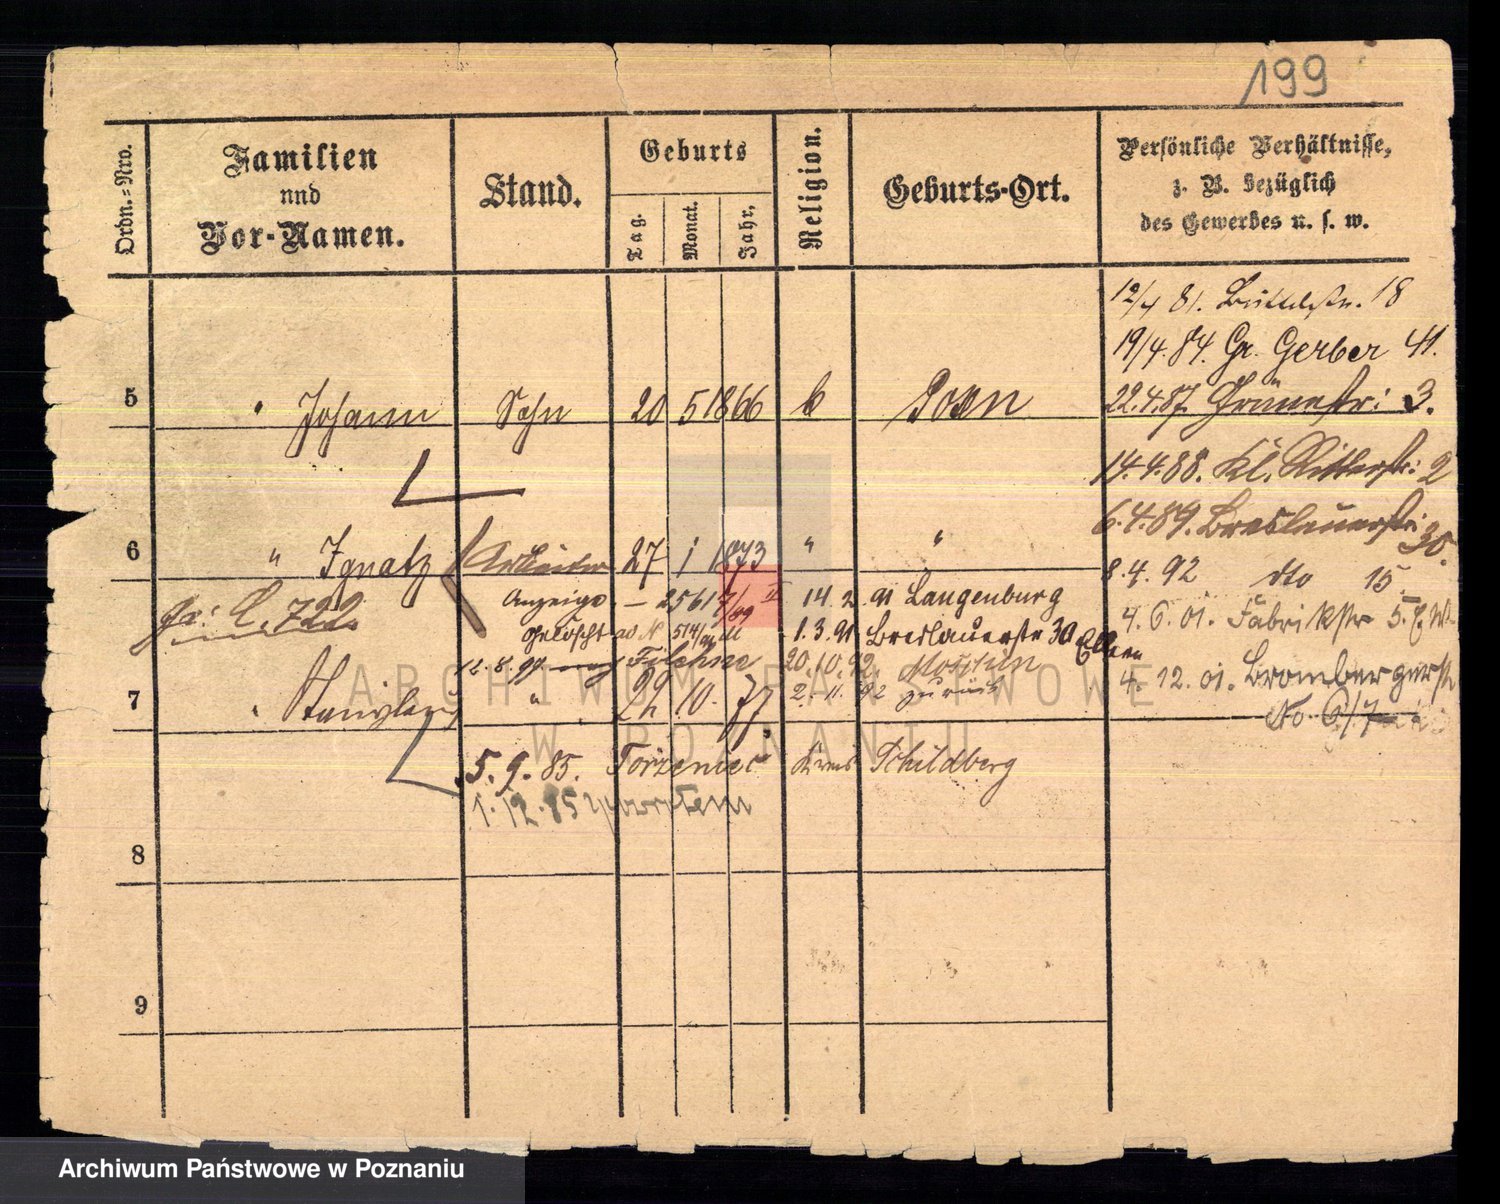 199
Ordn.-Nro.
Familien
und
Vor-Namen.
Stand.
Geburts
Tag.
Monat.
Jahr,
Religion.
Geburts-Ort.
Persönliche Verhältnisse,
z. B. bezüglich
des Gewerbes u. s. w.
12/4 81. 18
19/4. 84. Gr. Gerber 41.
5 Johann Sohn 20 5 1866 k Posen
22.4.87. Grünestr: 3.
14.4.88. Kl. Ritterstr: 2
6.4.89. Breslauerstr: 30.
6 " Ignatz Arbeiter 27 1 1873 " "
8.4.92 dto 15
Anzeige — 2561 14.2.91 Langenburg
L. 722
4.6.01. Fabrikstr 5.
gelöscht 514/91 1.3.91 Breslauerstr 30 Eltern
12.8.97 Filehne 20.10.92. Moschin
4.12.01. Brombergerstr
No. 6/7
7 Stanislaus " 22 10. 77 2.11.92 zurück
5.9.85. Torzeniec Kreis Schildberg
1.12.85
8
9
ARCHIWUM PAŃSTWOWE
W POZNANIU
Archiwum Państwowe w Poznaniu